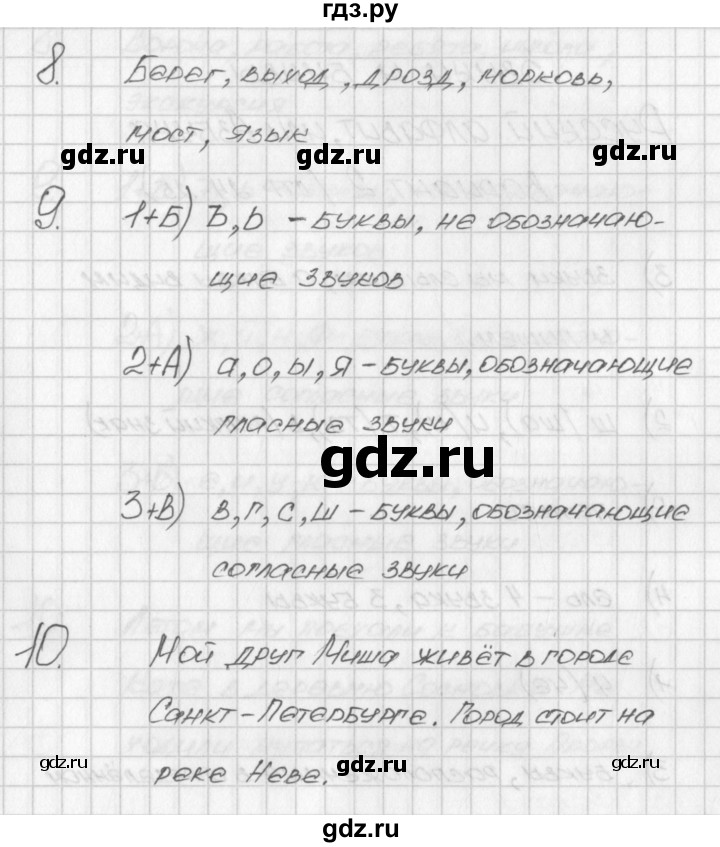 гдз.ру
8. Берег, выход, дрозд, морковь,
мост, язык
gdz.ru gdz.ru
9. 1+Б) Ъ, Ь – буквы, не обозначаю-
щие звуков
2+А) а, о, ы, я – буквы, обозначающие
гласные звуки
gdz.ru
3+В) в, г, с, ш – буквы, обозначающие
согласные звуки
10. Мой друг Миша живёт в городе
Санкт-Петербурге. Город стоит на
реке Неве.
gdz.ru gdz.ru gdz.ru
gdz.ru